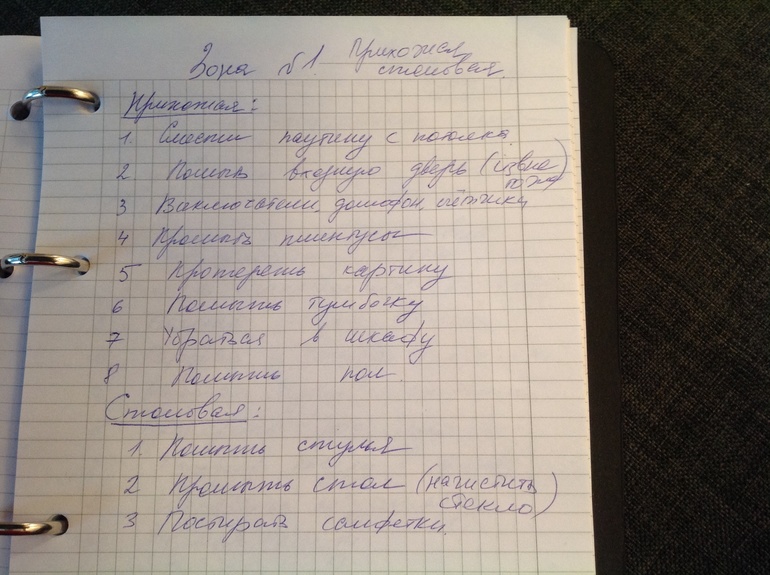 Зона №1 Прихожая,
столовая.
Прихожая:
1. Смести паутину с потолка
2 Помыть входную дверь (извне
тоже)
3 Выключатели, домофон, счётчики
4 Промыть плинтусы
5 Протереть картину
6 Помыть тумбочку
7 Убраться в шкафу
8 Помыть пол.
Столовая:
1. Помыть стулья
2 Промыть стол (начистить
стекло)
3 Постирать салфетки.